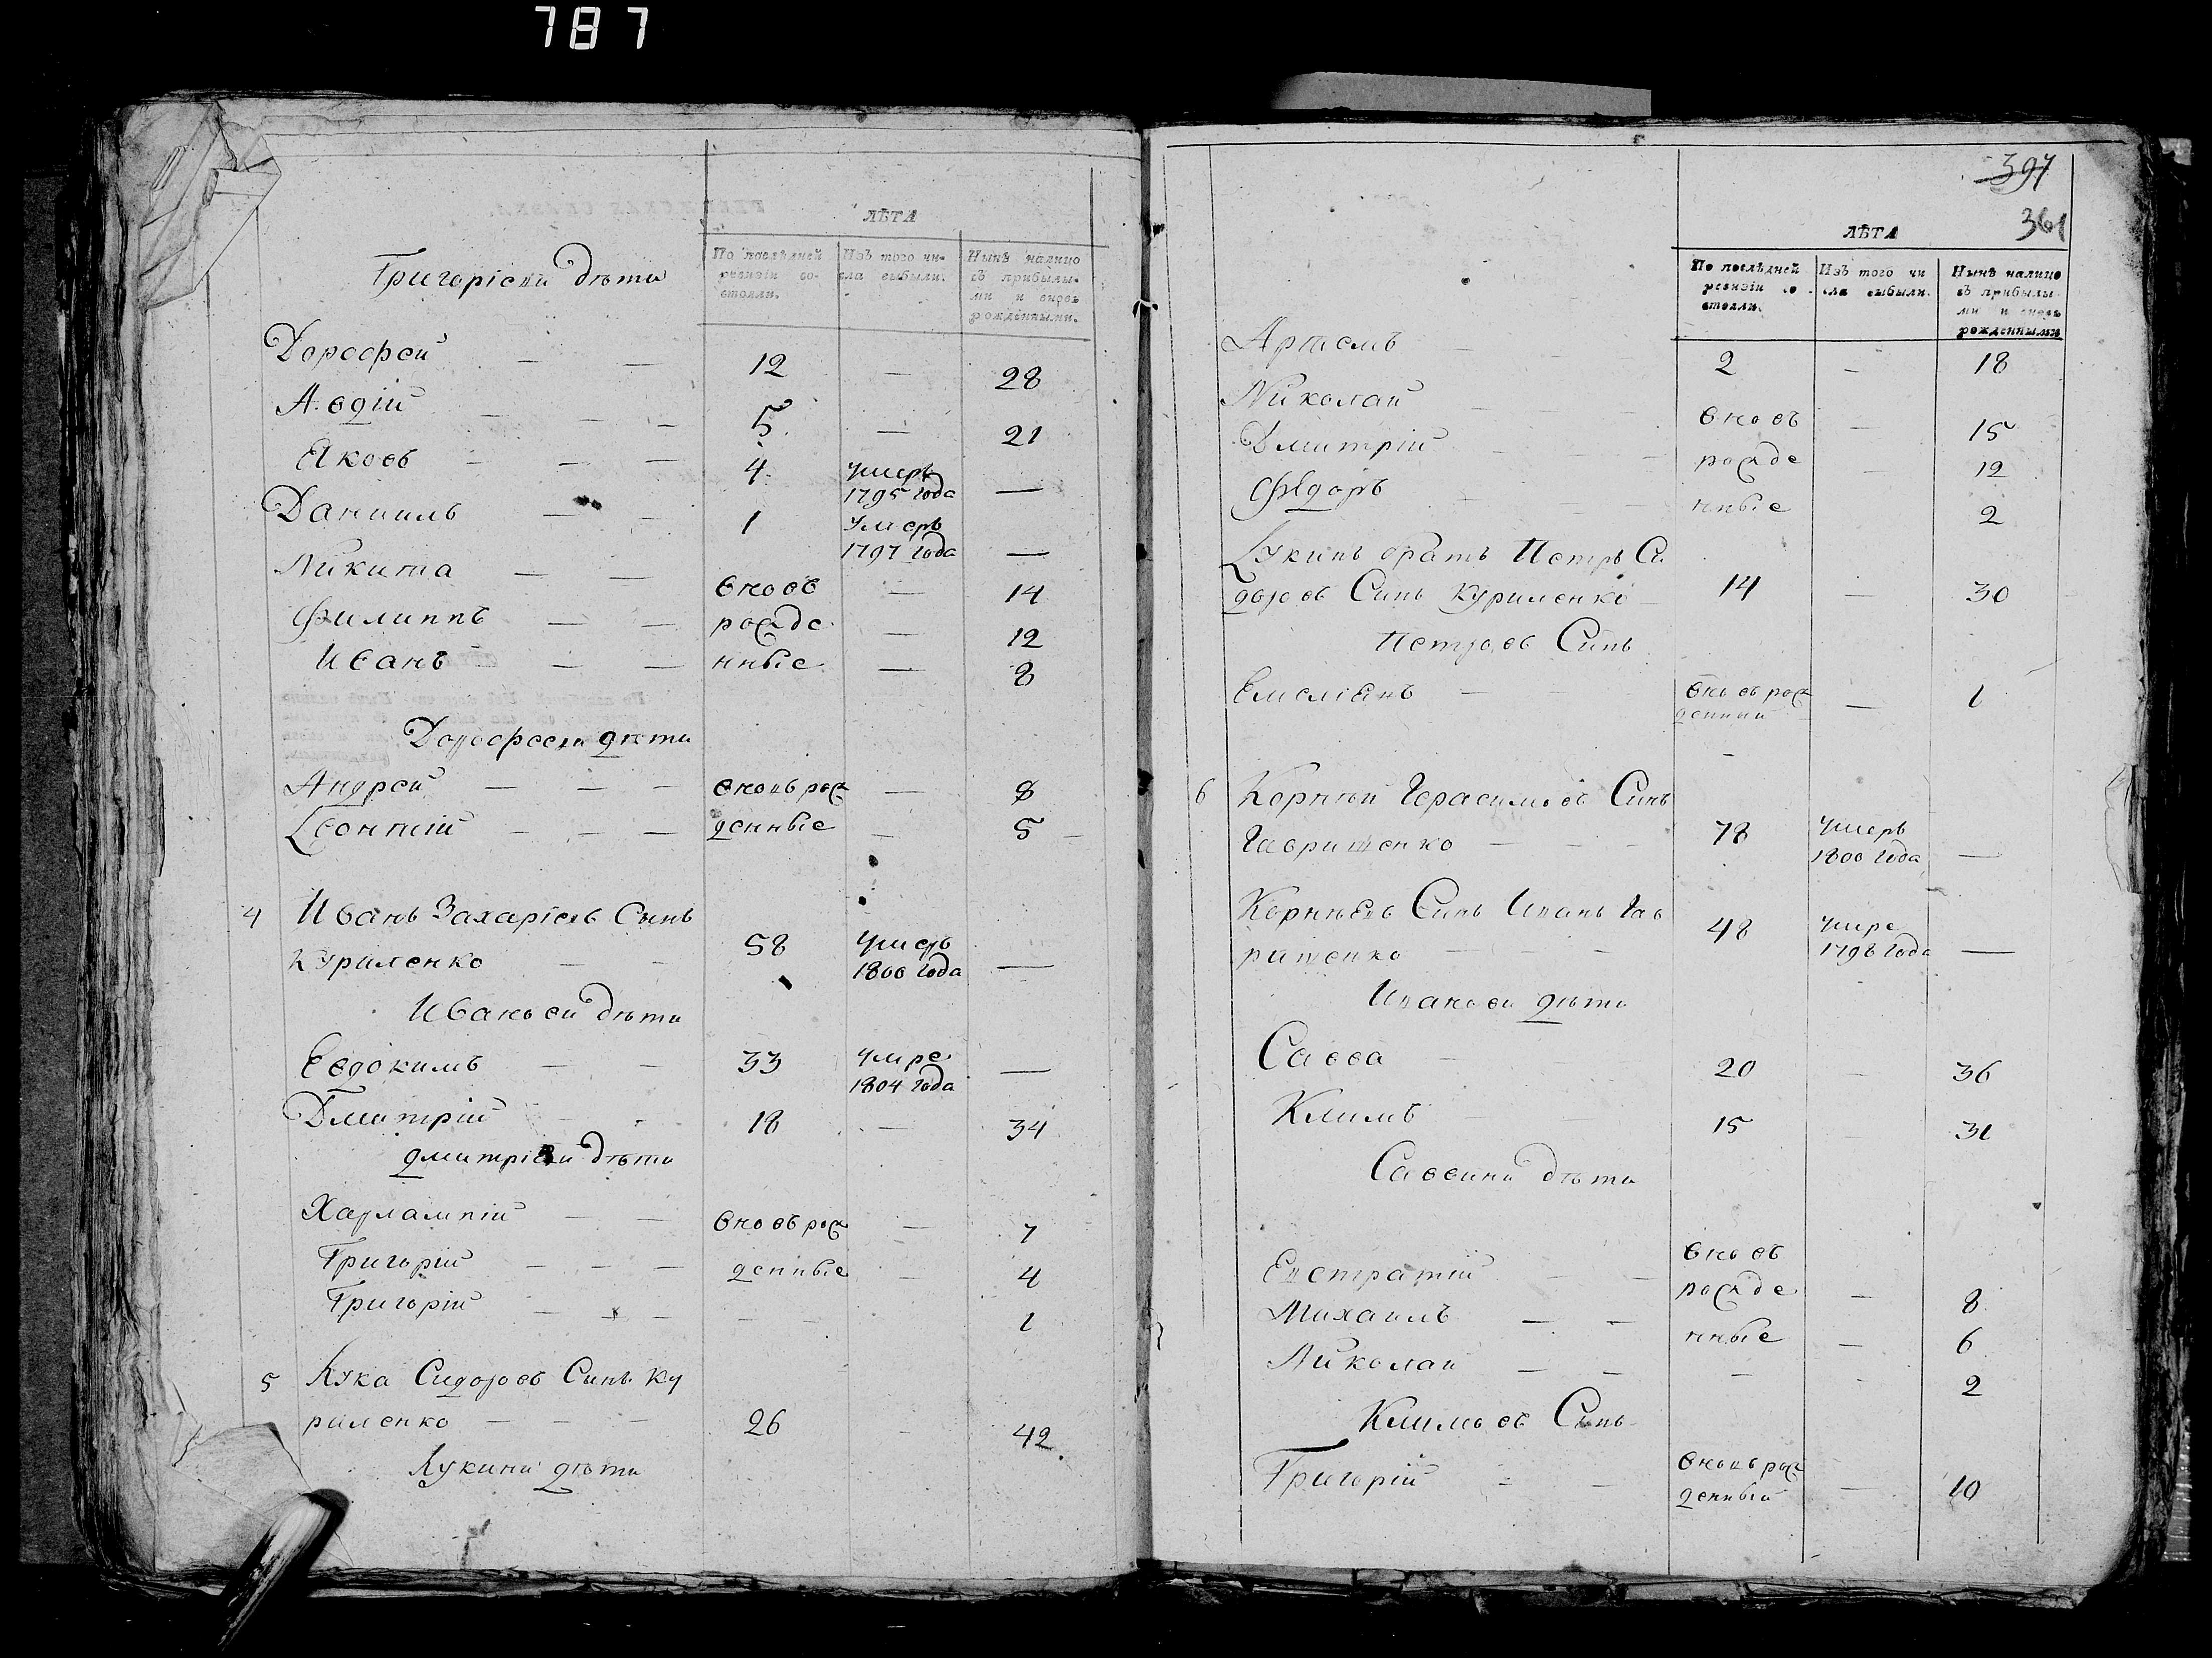 787
ЛѢТА
По послѣдней ревизіи состояли.
Изъ того числа выбыли.
Нынѣ налицо съ прибылыми и вновь рожденными.
Григоріеви дѣти
Дорофей — — 12 — 28
Авдій — — 5 — 21
Яковъ — — — 4 умеръ 1795 года —
Данилъ — — 1 умеръ 1797 года —
Никита — — вновь — 14
Филиппъ — — рожде — 12
Иванъ — — нные — 8
Дорофееви дѣти
Андрей — — — вновь рож — 8
Леонтій — — — денные — 5
4 Иванъ Захаріевъ Сынъ
Куриленко — — 58 умеръ 1800 года —
Иванови дѣти
Евдокимъ — — 33 умре 1804 года —
Дмитрій — — 18 — 34
Дмитріеви дѣти
Харлампій — — вновь рож — 7
Григорій — — — денные — 4
Григорій — — — — — 1
5 Лука Сидоровъ Сынъ Ку
риленко — — — 26 — 42
Лукини дѣти
397
361
ЛѢТА
По послѣдней ревизіи состояли.
Изъ того числа выбыли.
Нынѣ налицо съ прибылыми и вновь рожденными
Артемъ — — — 2 — 18
Николай — — — вновь — 15
Дмитрій — — — рожде — 12
Федоръ — — — нные 2
Лукинъ братъ Петръ Си
доровъ Синъ Куриленко — 14 — 30
Петровъ Синъ
Емеліянъ — — вновь рож
денный — 1
—
6 Корнѣй Герасимовъ Синъ
Гавришенко — — — 78 умеръ 1800 года —
Корнѣевъ Синъ Иванъ Гав
ришенко — — — 48 умре 1798 года —
Иванови дѣти
Савва — 20 — 36
Климъ — — 15 — 31
Саввини дѣти
Евстратій — — вновь рожде — 8
Михаилъ — — нные — 6
Николай — — — — 2
Климовъ Синъ
Григорій — — вновь рож
денный — 10